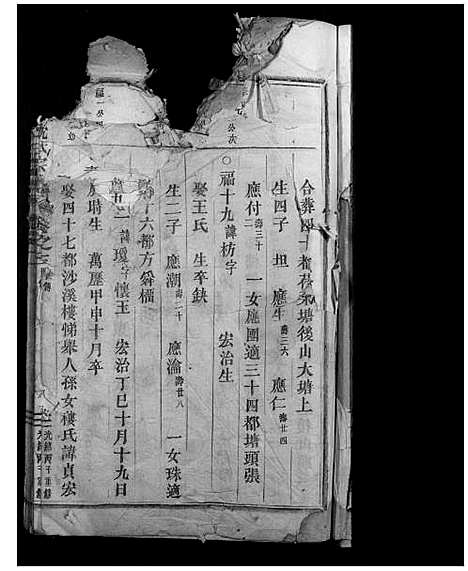 合葬四十都蓀朶塘後山大塘上
生四子 坦 應生壽三六 應仁壽廿四
應付壽三十二 一女應團適三十四都塘頭張
公次
○福十九諱枋字 宏治生
娶王氏 生卒缺
生二子 應潮壽二十 應瀹壽廿八 一女珠適
十六都方舜櫃
福一公
諱瓊字懷玉 宏治丁巳十月十九日
時生 萬歷甲申十月卒
娶四十七都沙溪樓悌舉人孫女樓氏諱貞宏
卷之
光緒丙子重修